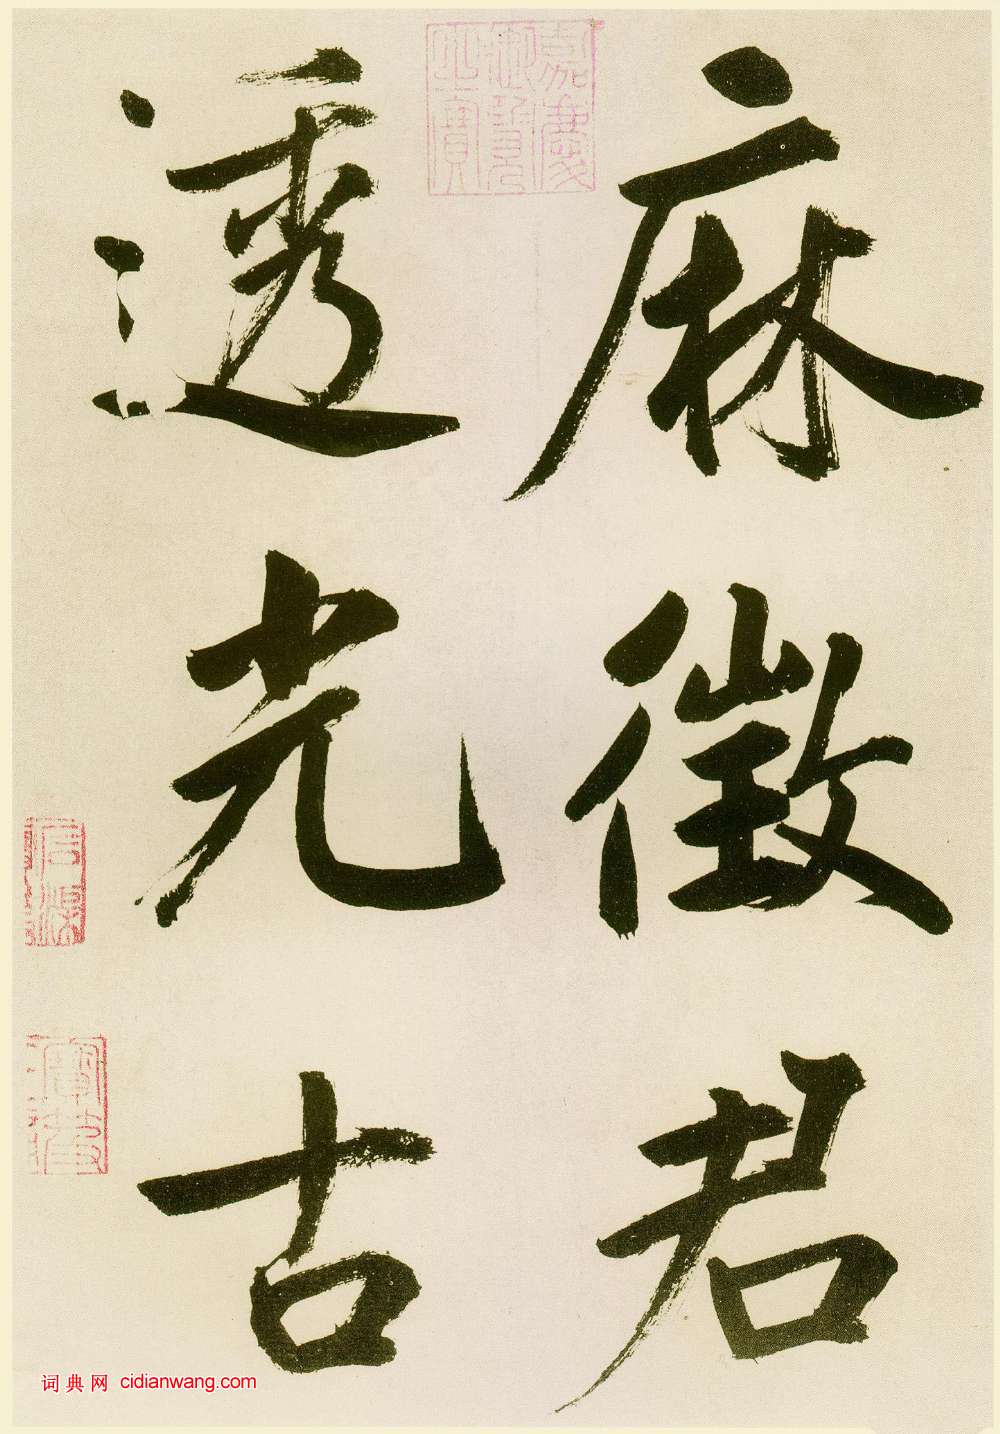 麻徵君
透光古
嘉慶御覽之寶
词典网 cidianwang.com